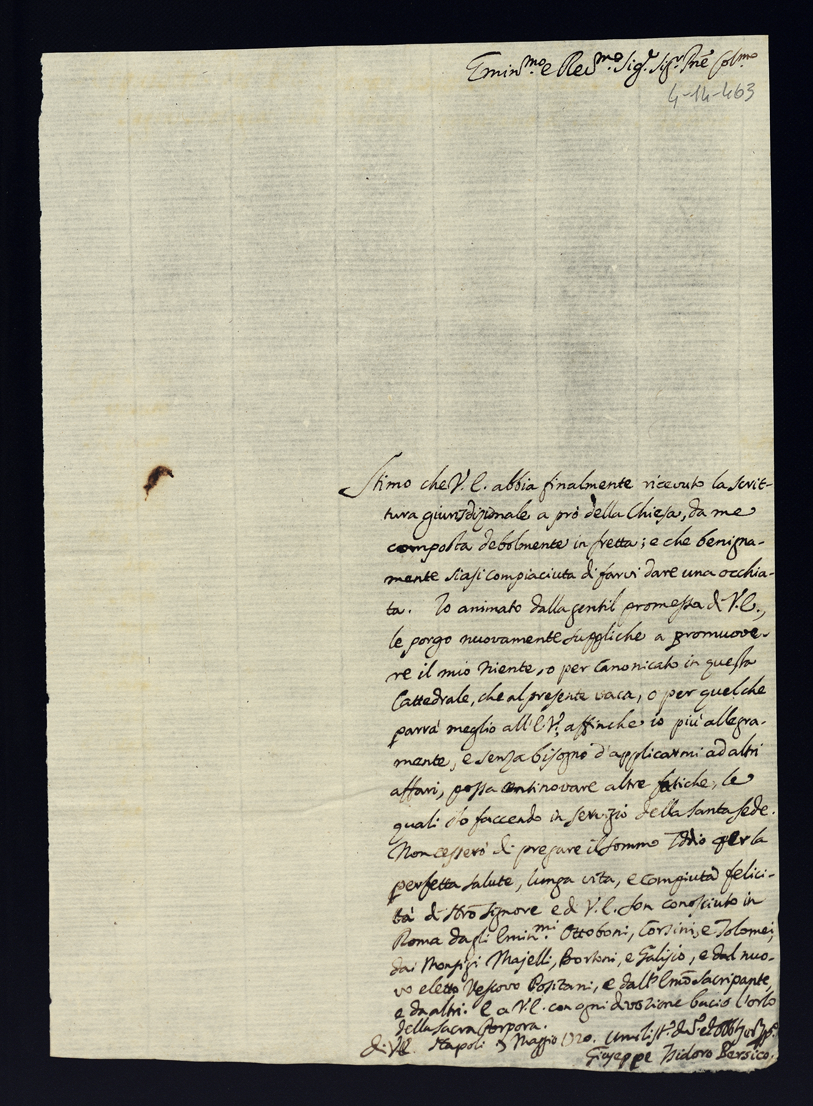 Emin.mo e Re.mo Sig.r Sig.r Pñe Col.mo
4-14-463
Stimo che V. E. abbia finalmente ricevuto la scrit-
tura giurisdizionale a prò della Chiesa, da me
composta debolmente in fretta; e che benigna-
mente siasi compiaciuta di farvi dare una occhia-
ta. Io animato dalla gentil promessa di V. E.,
le porgo nuovamente suppliche a promuove-
re il mio niente, o per Canonicato in questa
Cattedrale, che al presente vaca, o per quel che
parrà meglio all'E. V., affinche io più allegra-
mente, e senza bisogno d'applicarmi ad altri
affari, possa continovare altre fatiche, le
quali sto faccendo in servizio della Santa Sede.
Non cesserò di pregare il sommo Iddio per la
perfetta salute, lunga vita, e compiuta felici-
tà di Nro Signore e di V. E. Son conosciuto in
Roma dagli Emin.mi Ottoboni, Corsini, e Tolomei,
dai Monsigi Majelli, Bortoni, e Galizio, e dal nuo-
vo eletto Vescovo Positani, e dall'Emo Sacripante,
e da altri. E a V. E. con ogni divozione bacio l'orlo
della Sacra Porpora.
di V. E. Napoli Maggio 1720. Umiliss.o
Giuseppe Isidoro Persico.